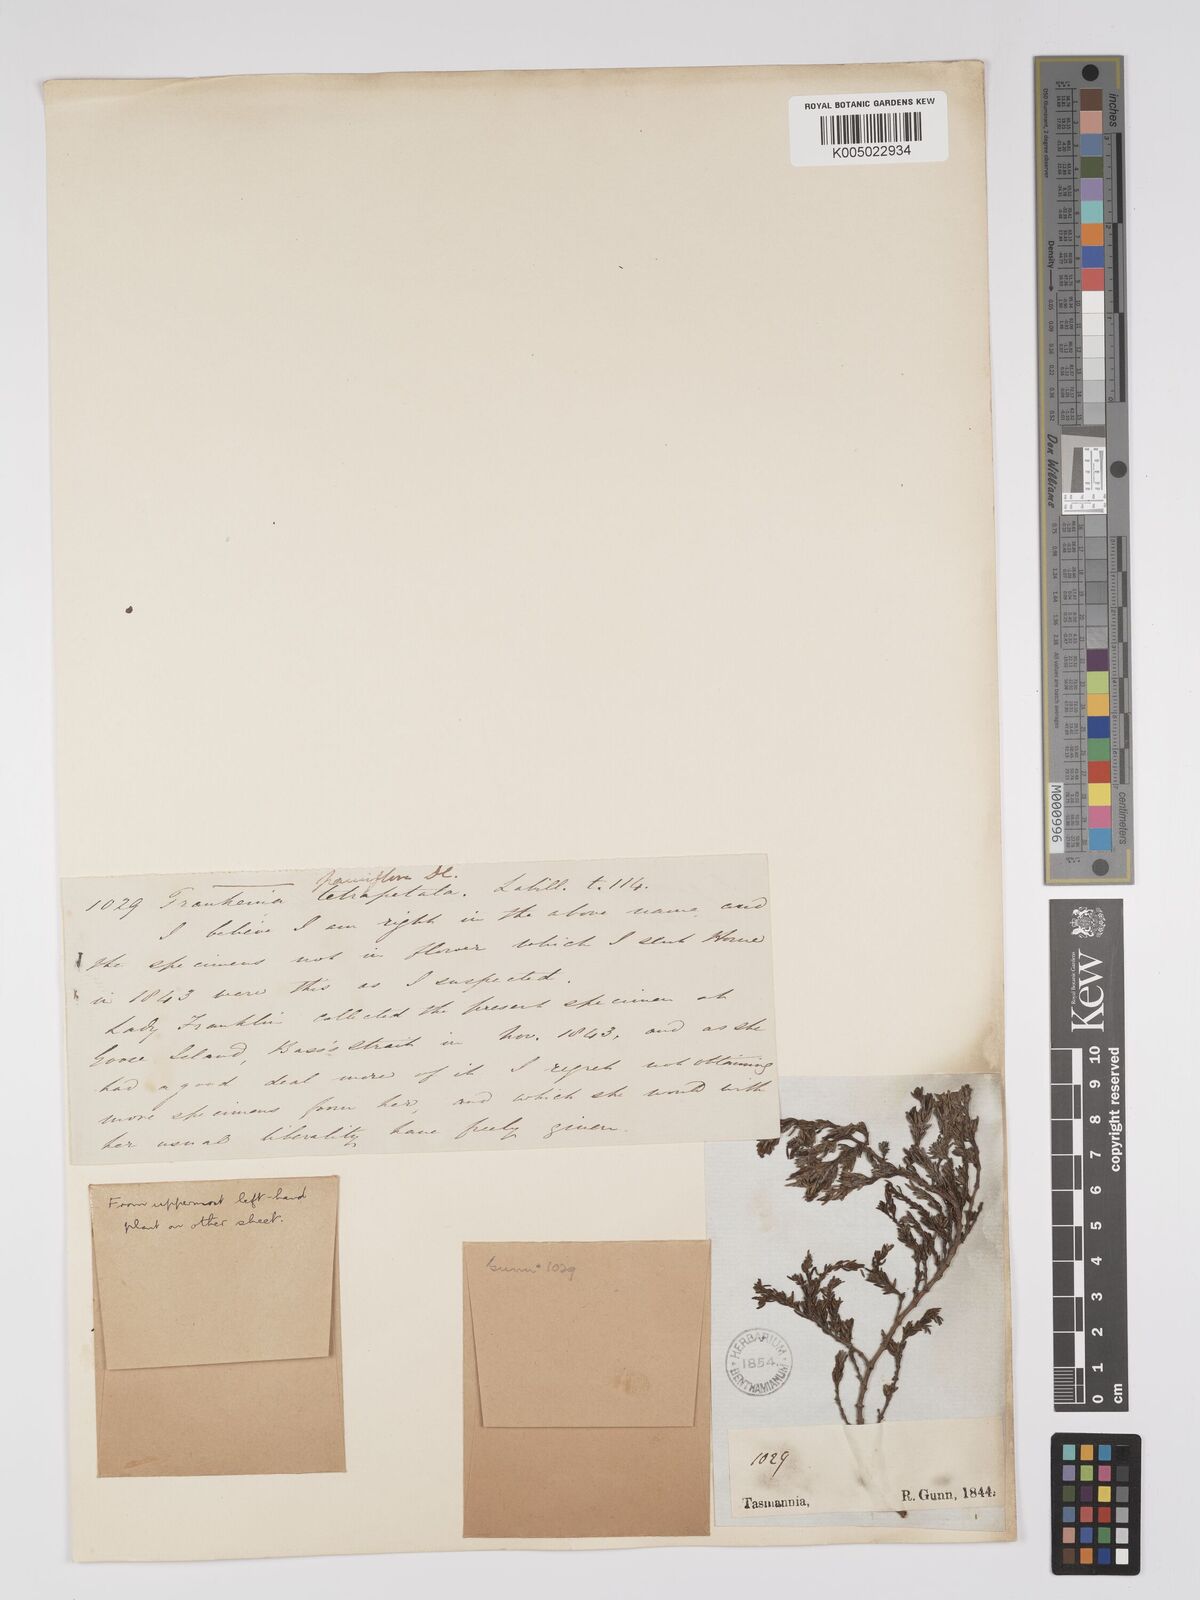 ROYAL BOTANIC GARDENS KEW
K005022934
pauciflora DC.
1029 Frankenia tetrapetala. Labill. t. 114.
I believe I am right in the above name and
the specimens not in flower which I sent Home
in 1843 were this as I suspected.
Lady Franklin collected the present specimen at
Goose Island, Bass's Strait in Nov. 1843, and as she
had a good deal more of it I regret not obtaining
more specimens from her, and which she would with
her usual liberality have freely given.
From uppermost left-hand
plant on other sheet.
Gunn 1029
HERBARIUM
1854.
BENTHAMIANUM
1029
Tasmannia,
R. Gunn, 1844.
inches
centimeters
Density
Don Williams
M000996
Royal Botanic Gardens
Kew
copyright reserved
10
9
8
7
6
5
4
3
2
1
0
cm